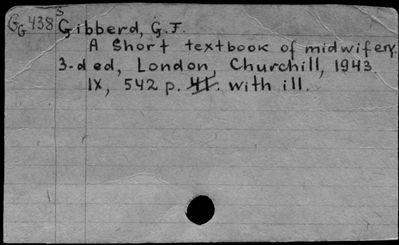 Gg 438 s Gibberd, G.F.
A Short textbook of midwifery.
3-d ed, London, Churchill, 1943.
IX, 542 p. ill. with ill.